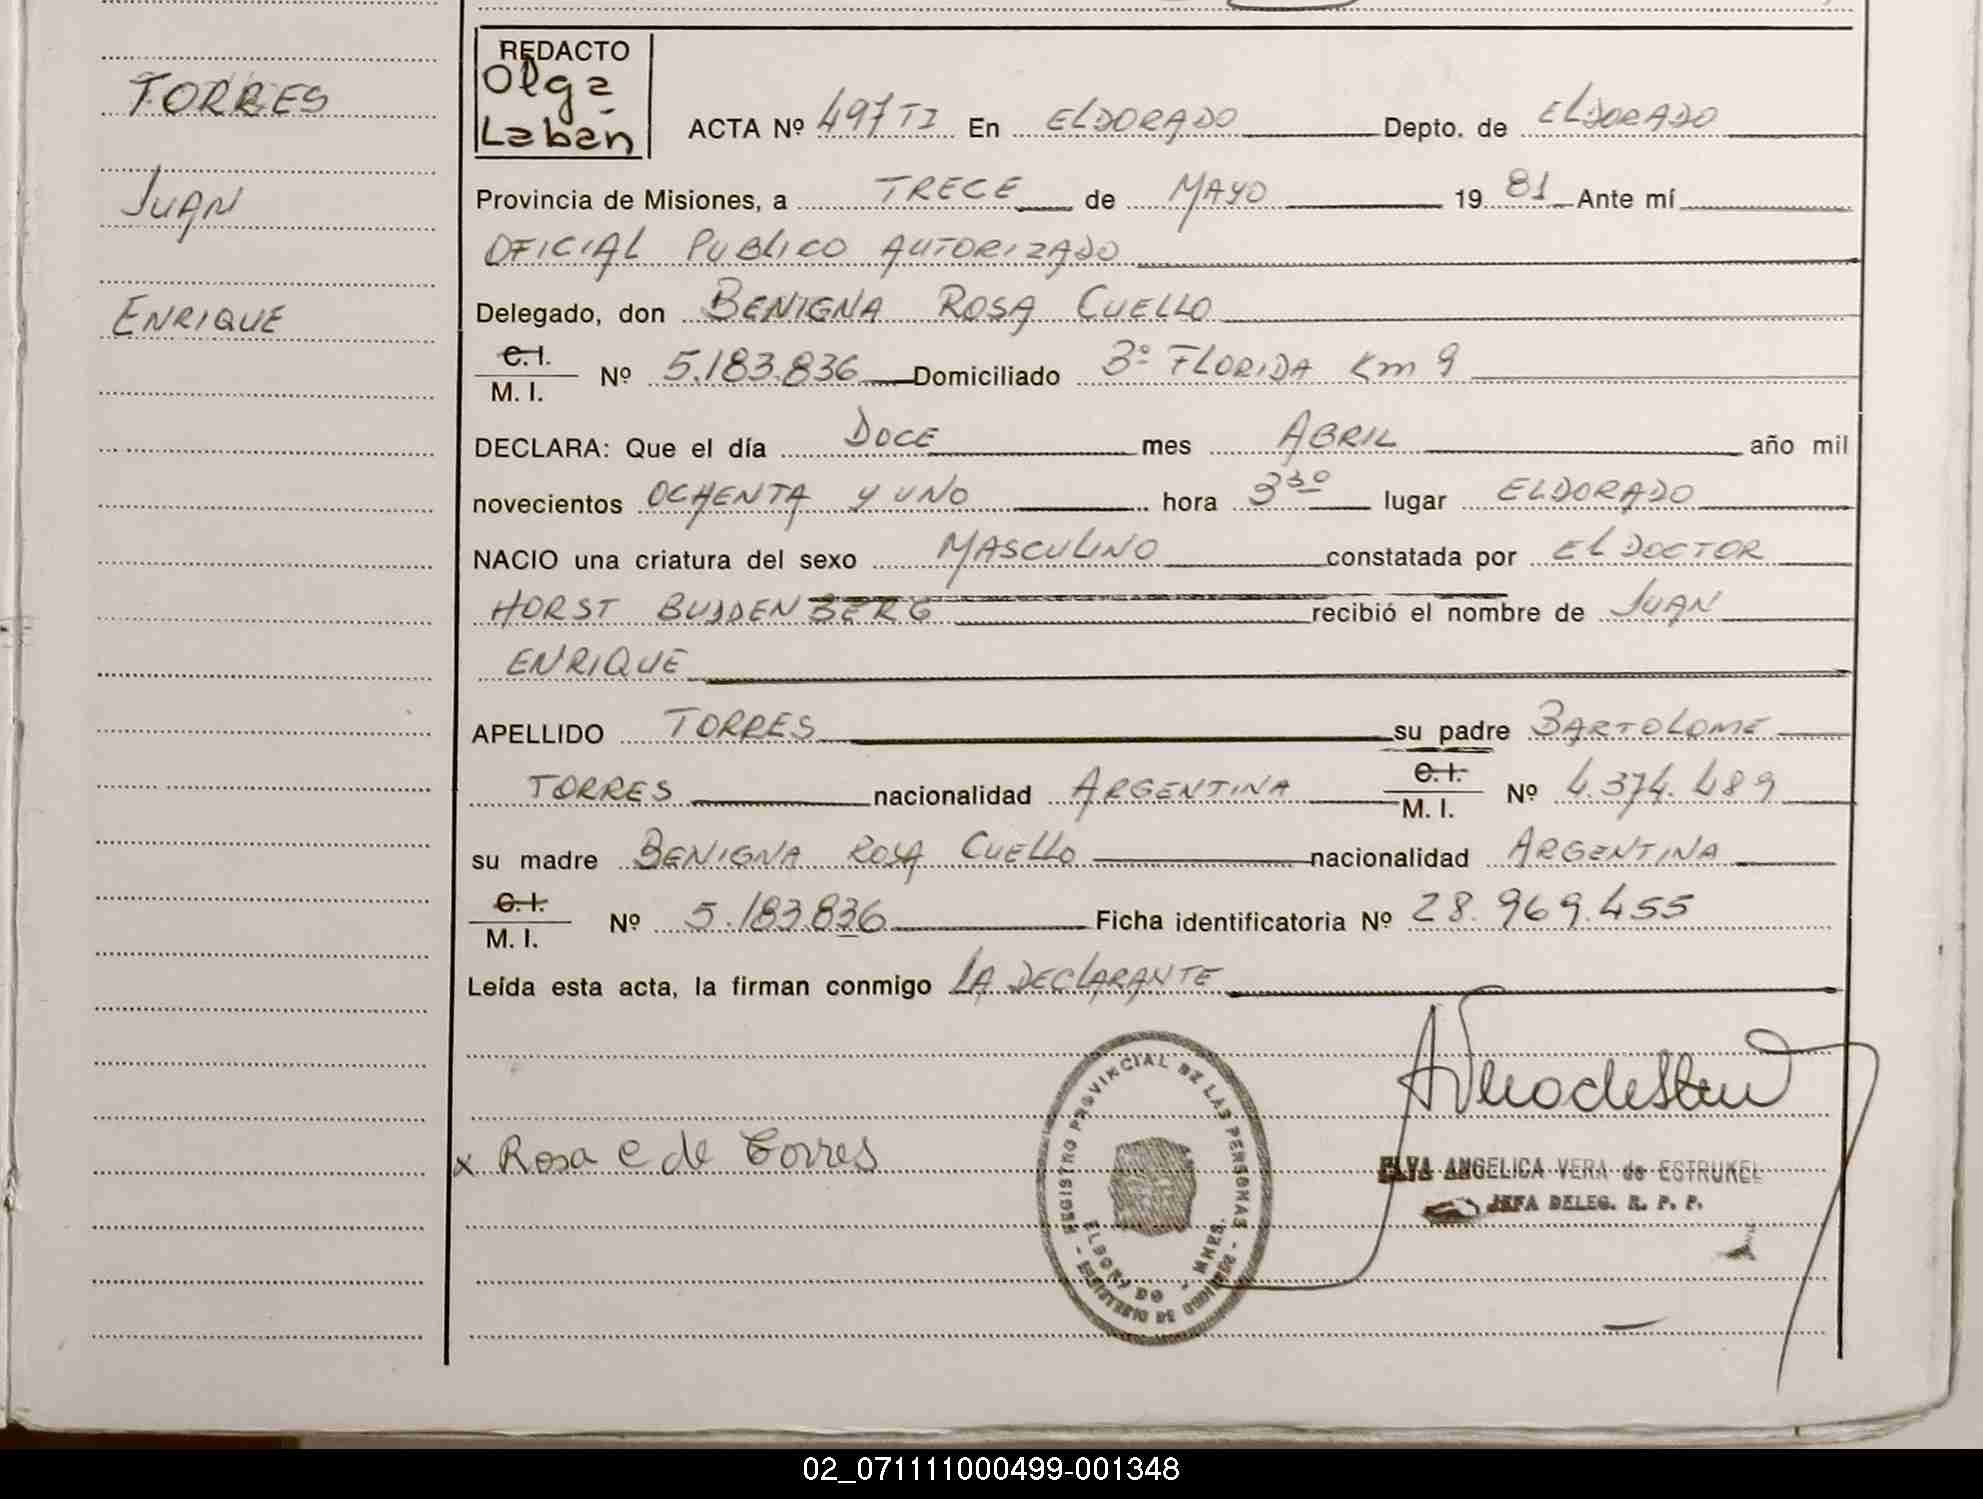 TORRES
JUAN
ENRIQUE
REDACTO
Olga
Laban
ACTA Nº 497 TI En ELDORADO Depto. de ELDORADO
Provincia de Misiones, a TRECE de MAYO 19 81 Ante mí
OFICIAL PUBLICO AUTORIZADO
Delegado, don BENIGNA ROSA CUELLO
C.I.
M. I. Nº 5.183.836 Domiciliado 3º FLORIDA Km 9
DECLARA: Que el día DOCE mes ABRIL año mil
novecientos OCHENTA y UNO hora 3 30 lugar ELDORADO
NACIO una criatura del sexo MASCULINO constatada por EL DOCTOR
HORST BUDDENBERG recibió el nombre de JUAN
ENRIQUE
APELLIDO TORRES su padre BARTOLOME
TORRES nacionalidad ARGENTINA C.I. M. I. Nº 4.374.489
su madre BENIGNA ROSA CUELLO nacionalidad ARGENTINA
C.I.
M. I. Nº 5.183.836 Ficha identificatoria Nº 28.969.455
Leída esta acta, la firman conmigo LA DECLARANTE
x Rosa C de Torres
REGISTRO PROVINCIAL DE LAS PERSONAS - MINISTERIO DE GOBIERNO
ELDORADO - MNES.
ELVA ANGELICA VERA de ESTRUKEL
JEFA DELEG. R. P. P.
02_071111000499-001348